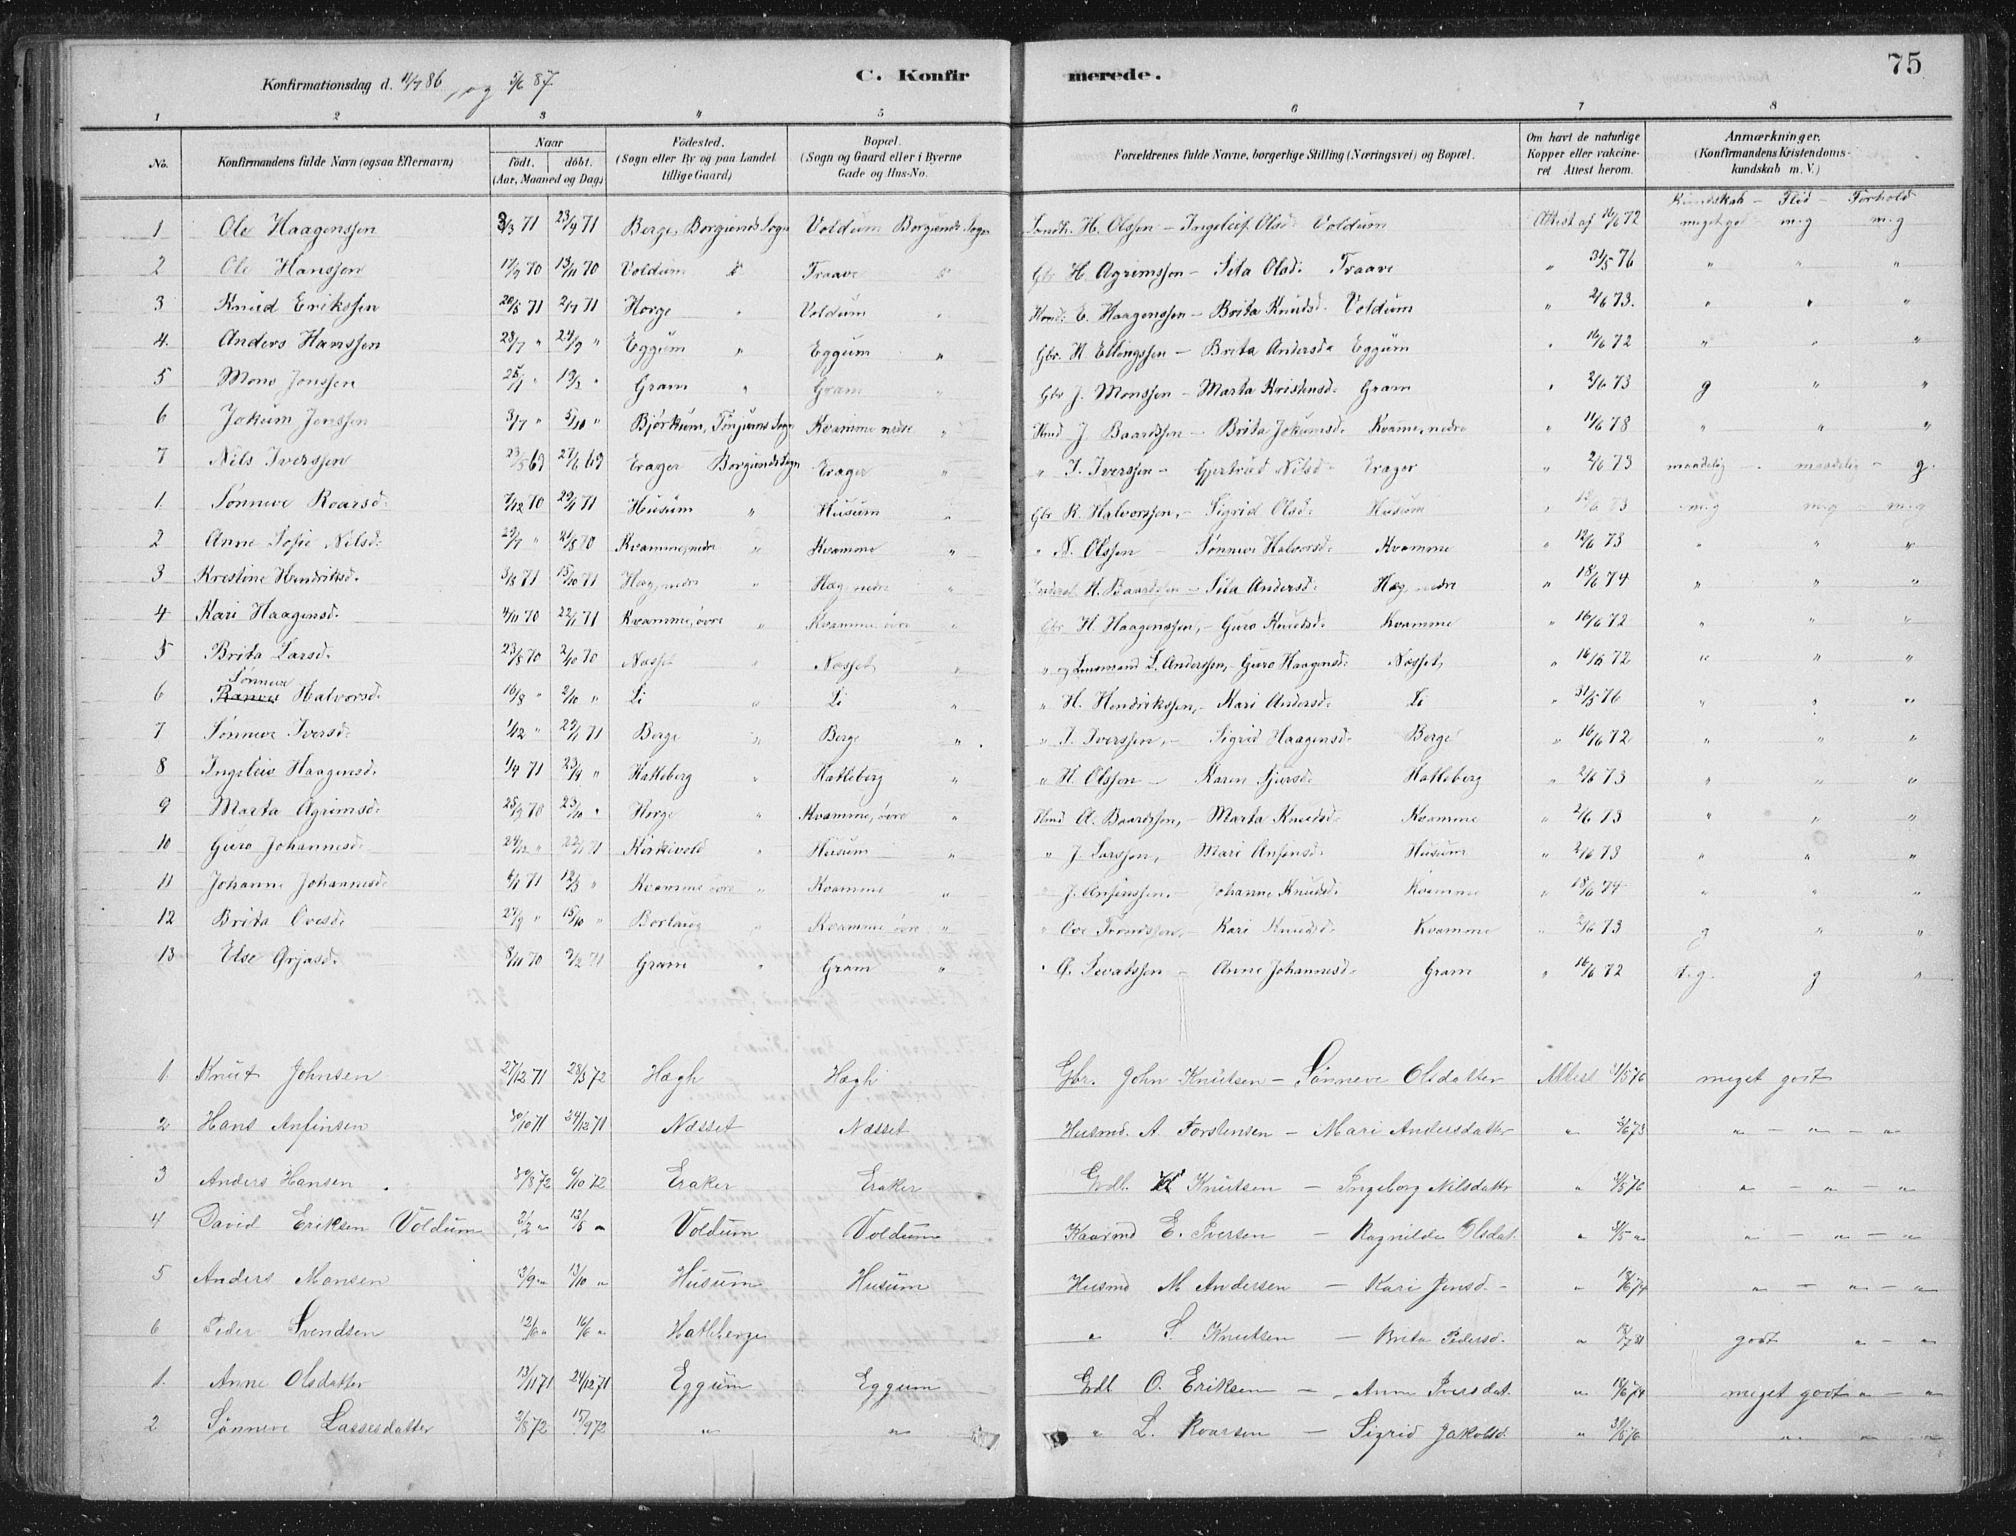 75
Konfirmationsdag d. 11/7 86, og 5/6 87. C. Konfirmerede.
1 2 3 4 5 6 7 8
No. Konfirmandens fulde Navn (ogsaa Efternavn) Naar födt. döbt. (Aar, Maaned og Dag) Födested. (Sogn eller By og paa Landet tillige Gaard) Bopæl. (Sogn og Gaard eller i Byerne Gade og Hus-No. Forældrenes fulde Navne, borgerlige Stilling (Næringsvei) og Bopæl. Om havt de naturlige Kopper eller vakcineret Attest herom. Anmærkninger. (Konfirmandens Kristendomskundskab m. V.)
Kundskab – Flid – Forhold
1 Ole Haagenssen 3/3 71 23/9 71 Berge, Borgunds Sogn Voldum Borgunds Sogn H. Olssen – Olsd. Voldum Attest af 16/6 72 meget gd m.g m.g
2 Ole Hanssen 17/9 70 13/11 70 Voldum Traave Gbr H. Agrimssen – Sita Olsd. Traave " 31/5 76 " " "
3 Knud Erikssen 20/5 71 2/7 71 Horge " Voldum " E. Haagenssen – Brita Knudsd. Voldum " 2/6 73. " " "
4. Anders Hanssen 23/7 " 24/9 " Eggum " Eggum " Gbr. H. Ellingssen – Brita Andersd. Eggum " 16/6 72 " " "
5 Mons Jonssen 25/1 " 19/3 " Gram " Gram " Gbr J. Monssen – Marta Kristensd. Gram " 2/6 73 g " "
6 Jokum Jonssen 3/7 " 5/10 " Bjørkum, Tønjums Sogn Kvamme nedre " Hmd J. Baardssen – Brita Jokumsd. Kvame, nedre " 11/6 78 " " "
7 Nils Iverssen 23/5 69 27/6 69 Erager Borgunds Sogn Erager " " I. Iverssen – Gjertrud Nilsd. Erager " 2/6 73 maadelig – maadelig – g.
1. Sønneve Roarsd. 7/12 70 29/1 71 Husum " Husum " Gbr R. Halvorssen, – Sigrid Olsd. Husum " 12/6 73 m.g m.g – m.g
2 Anne Sofie Nilsd. 29/7 " 21/8 70 Kvamme, nedre " Kvamme " " N. Olssen – Sønneve Halvorsd. Kvamme " 12/6 73 " " "
3 Kristine Hendriksd. 3/8 71 15/10 71 Hæg, nedre " Hæg, nedre " H. Baardssen – Sita Andersd. Hæg, nedre " 18/6 74 " " "
4 Kari Haagensd. 4/11 70 22/1 71 Kvamme, øvre " Kvamme, øvre " Gbr H. Haagenssen, – Guro Knudsd. Kvamme " 16/6 72 " " "
5 Brita Larsd. 23/8 70 2/10 70 Næsset " Næsset " " og Lensmand L. Anderssen, – Guro Haagensd. Næsset, " 16/6 72 " " "
Sønneve
6 Halvorsd. 16/8 " 2/10 " Li " Li " " H. Hendrikssen, – Kari Andersd. Li " 31/5 76 " " "
7 Sønneve Iversd. 1/12 " 29/1 71 Berge " Berge " " I. Iverssen, – Sigrid Haagensd. Berge " 16/6 72 " " "
8 Ingeleiv Haagensd. 1/9 71 23/9 " Hatleberg " Hatleberg " " H. Olssen – Karen Sjursd. Hatleberg " 2/6 73 " " "
9 Marta Agrimsd. 25/9 70 23/10 " Horge " Kvamme, øvre " Hmd A. Baardssen, – Marta Knudsd. Kvamme " 2/6 73 " " "
10 Guro Johannesd. 24/12 " 22/1 71 Kirkevold " Husum " " J. Larssen, Mari Anfinsd. Husum " 2/6 73 " " "
11 Johanne Johannesd. 6/1 71 12/3 " Kvamme øvre " Kvamme " " J. Anfinssen. – Johanne Knudsd. Kvamme " 18/6 74 " " "
12 Brita Ovesd. 27/9 " 15/10 " Borlaug " Kvamme, øvre " " Ove Trondssen, – Kari Knudsd. Kvamme " 2/6 73 g " "
13 Else Ørjasd. 8/11 70 9/2 71 Gram " Gram " " Ø. Sevatssen – Anne Johannesd. Gram " 16/6 72 t.g. g "
1. Knut Johnsen 27/12 71 28/3 72 Hægh Hægh Gbr. John Knutsen – Sønneve Olsdatter Attest 31/5 76 meget godt
2 Hans Anfinsen 30/10 71 24/12 71 Næsset Næsset Husmd. A. Torstensen – Mari Andersdatter " 2/6 73 " – " – "
3 Anders Hansen 30/8 72 6/10 72 Eraker Eraker Grdb. H Knutsen – Ingeborg Nilsdattr " 31/5 76 " – " – "
4 David Eriksen Voldum 2/2 " 12/5 " Voldum Voldum Kaarmd E. Iversen – Ragnilda Olsdat. " 31/5 " " – " – "
5 Anders Monsen 13/9 " 13/10 " Husum Husum Husmd M Andersen – Kari Jensd. – " 18/6 74 " – " – "
6 Peder Svendsen 12/6 " 16/6 " Hatleberge " S. Knutsen – Brita Pedersd. " godt " – "
1. Anne Olsdatter 13/11 71 24/12 71 Eggum Eggum Grdb O. Eriksen – Anna Iversdat. " 18/6 74 meget godt " – "
2 Sønneve Lassesdatter 2/8 72 15/9 72 " " " L. Roarsen – Sigrid Jakobsd. " 31/5 76 " – " – "